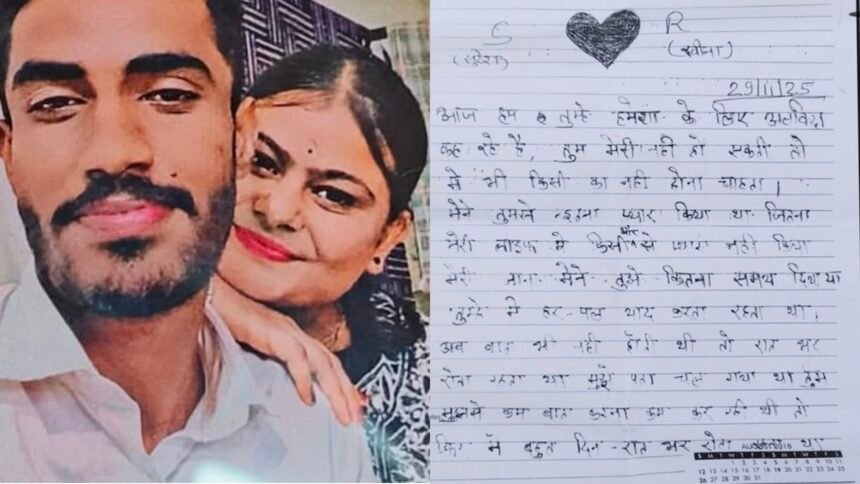 S R
(सुरेश) (रवीना)
29/11/25
आज हम तुम्हे हमेशा के लिए अलविदा
कह रहे है, तुम मेरी नही हो सकती तो
मे भी किसी का नही होना चाहता।
मेने तुमसे इतना प्यार किया था जितना
मेरी लाइफ मे किसी और से प्यार नही किया
मेरी जान मेने तुझे कितना समय दिया था
तुम्हे मे हर-पल याद करता रहता था,
अब बात भी नही होती थी तो रात भर
रोता रहता था मुझे पता चल गया था तुम
मुझसे कम बात करना कर रही थी तो
फिर मे बहुत दिन-रात भर रोता था
S M T W T F S S M T W T F S
1 2 3 4 5 6 7 8 9 10 11
12 13 14 15 16 17 18 19 20 21 22 23 24 25
26 27 28 29 30 31